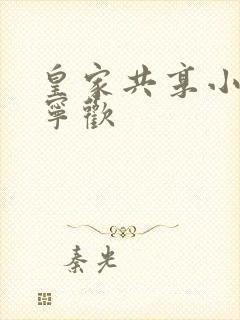 皇家共享小
寧歡
秦光